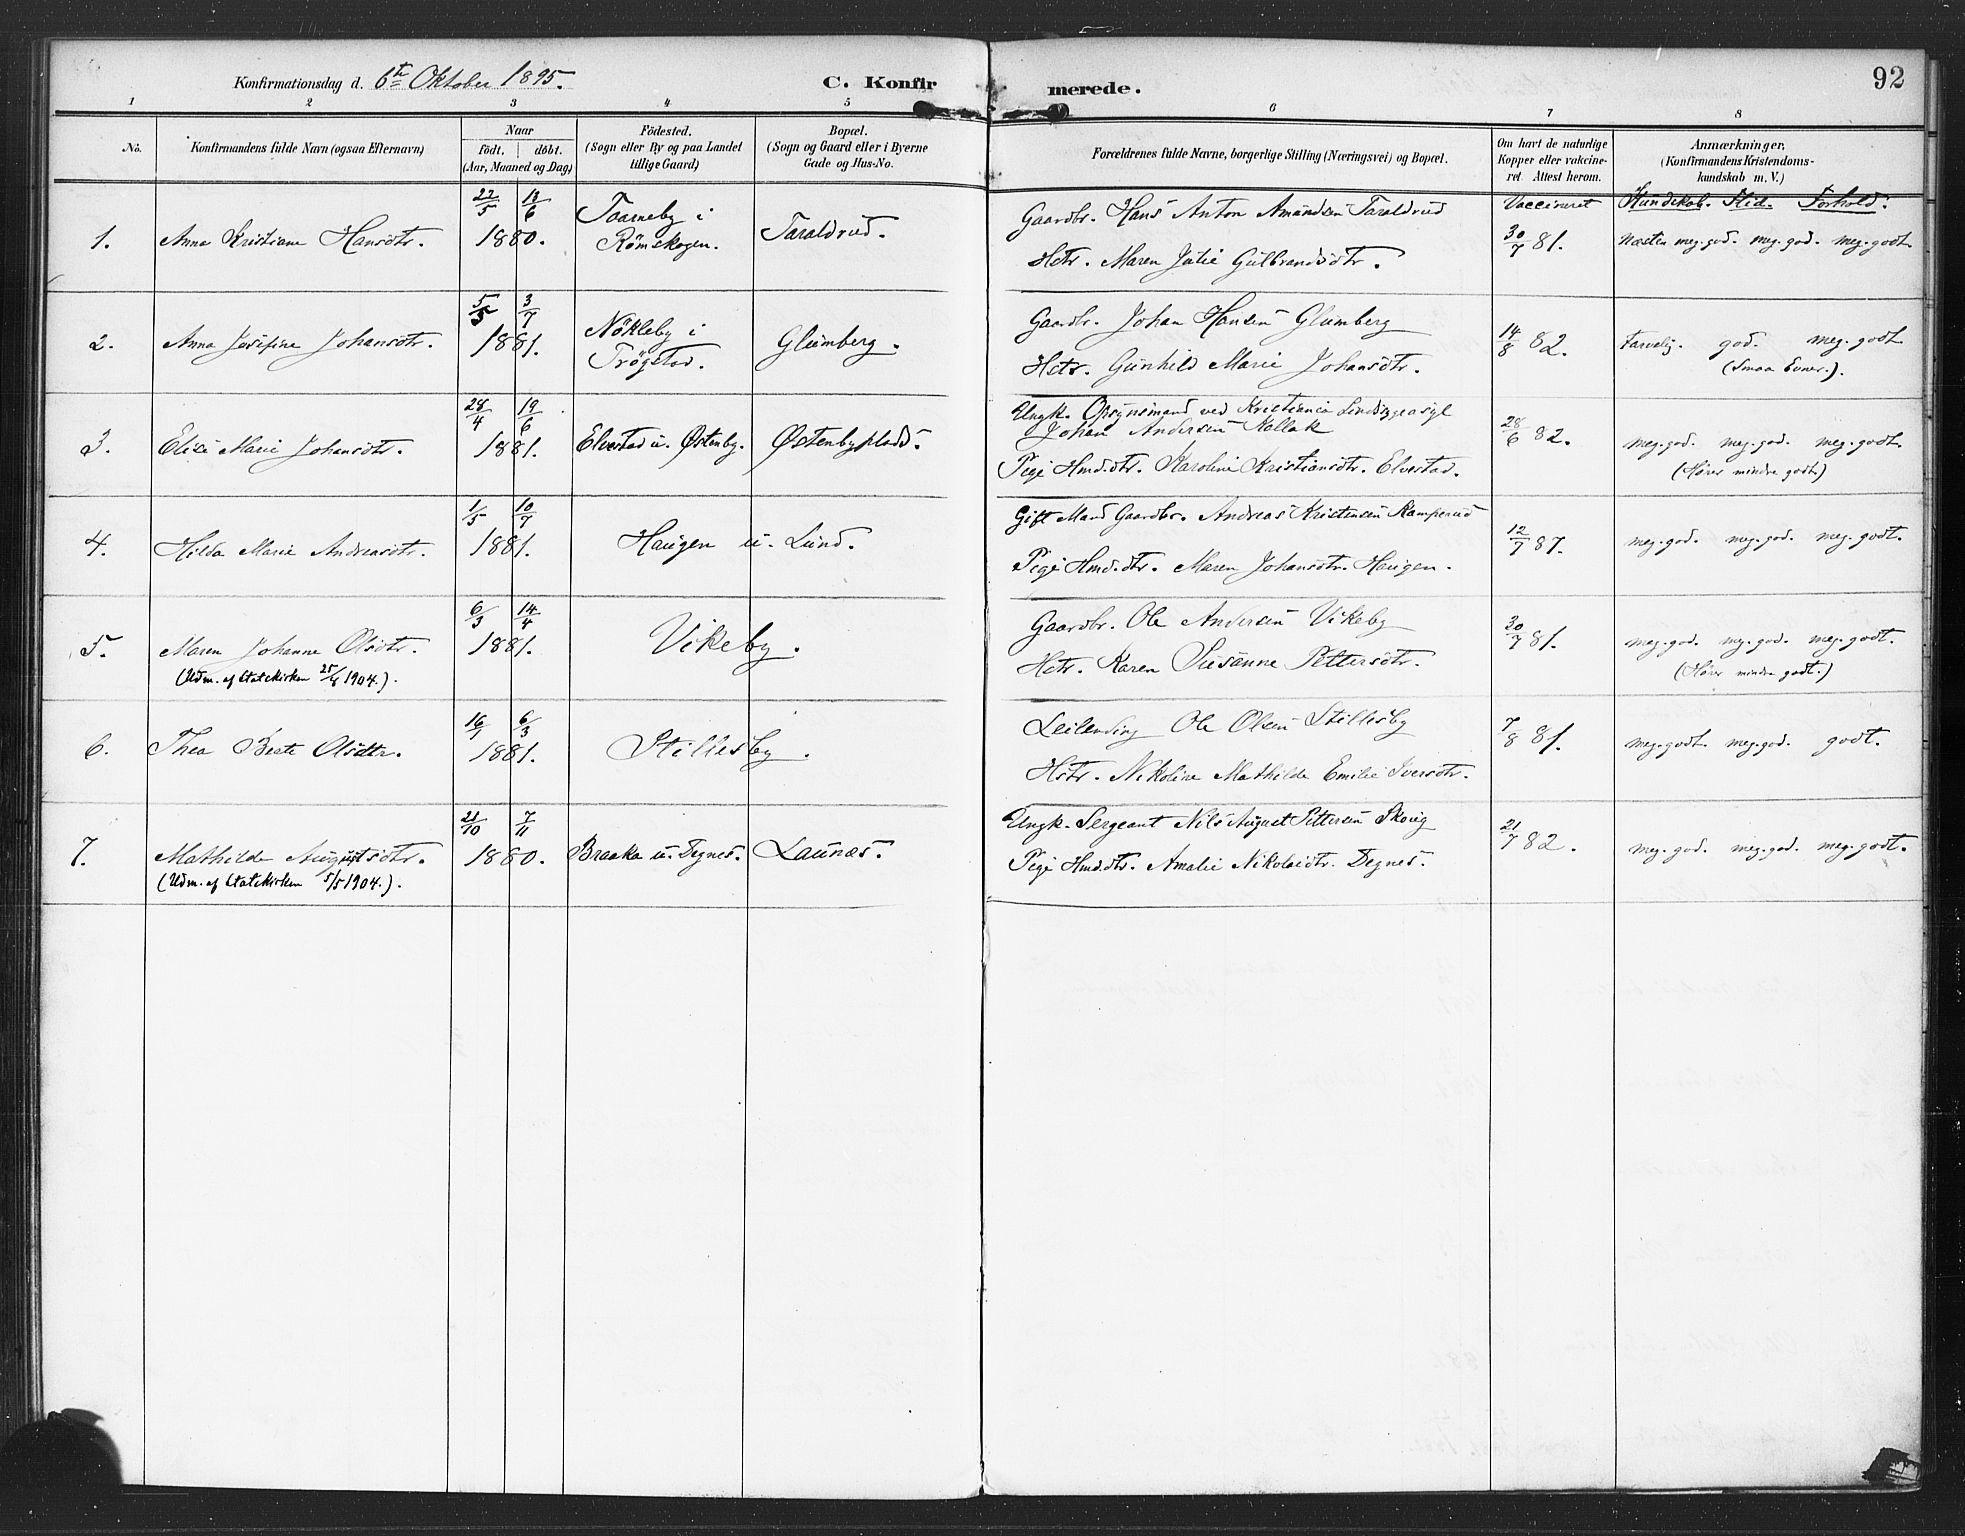 92
Konfirmationsdag d. 6te Oktober 1895.
C. Konfirmerede.
1 2 3 4 5 6 7 8
No.
Konfirmandens fulde Navn (ogsaa Efternavn)
Naar
födt. döbt.
(Aar, Maaned og Dag)
Födested.
(Sogn eller By og paa Landet
tillige Gaard)
Bopæl.
(Sogn og Gaard eller i Byerne
Gade og Hus-No.
Forældrenes fulde Navne, borgerlige Stilling (Næringsvei) og Bopæl.
Om havt de naturlige
Kopper eller vakcine-
ret. Attest herom.
Anmærkninger.
(Konfirmandens Kristendoms-
kundskab m. V.)
Vaccineret Kundskab. Flid. Forhold.
22/5 13/6 Taarneby i Gaardbr. Hans Anton Amundsen Taraldrud
1. Anna Kristiane Hansdtr. 1880. Römskogen. Taraldrud. 30/7 81. Næsten meg. god. meg. god. meg. godt
Hstr. Maren Julie Gulbrandsdtr.
5/5 3/7 Nökleby i Gaardbr. Johan Hansen Glumberg
2. Anna Josefine Johansdtr. 1881. Trögstad. Glumberg. 14/8 82. Tarvelig. god. meg. godt
Hstr. Gunhild Marie Johansdtr. (Smaa Evner.).
28/4 19/6 Ungk. Opsynsmand ved Kristiania
Johan Andersen Kallak
3. Elise Marie Johansdtr. 1881. Elvestad u. Østenby. Østenbyplads. 28/6 82. meg. god. meg. god. meg. godt.
Pige Hmd.dtr. Karoline Kristiansdtr. Elvestad. (Hører mindre godt)
1/5 10/7 Gift Mand Gaardbr. Andreas Kristensen Kamperud
4. Hilda Marie Andreasdtr. 1881. Haugen u. Lund. 12/7 87. meg. god. meg. god. meg. godt.
Pige Hmd.dtr. Maren Johansdtr. Haugen.
6/3 14/4 Gaardbr. Ole Andersen Vikeby
5. Maren Johanne Olsdtr. 1881. Vikeby. 30/7 81. meg. god. meg. god. meg. godt.
(Udm. af Statskirken 25/4 1904.). Hstr. Karen Susanne Pettersdtr. (Hører mindre godt.)
16/1 6/3 Leilending Ole Olsen Stillesby
6. Thea Beate Olsdtr. 1881. Stillesby. 7/8 81. meg. godt. meg. god. godt.
Hstr. Nikoline Mathilde Emilie Iversdtr.
21/10 7/11 Ungk. Sergeant Nils August Pettersen Skoug
7. Mathilde Augustsdtr. 1880. Braaka u. Degnes. Launæs. 21/7 82. meg. god. meg. god. meg. godt.
(Udm. af Statskirken 5/5 1904.). Pige Hmd.dtr. Amalie Nikolaidtr. Degnes.